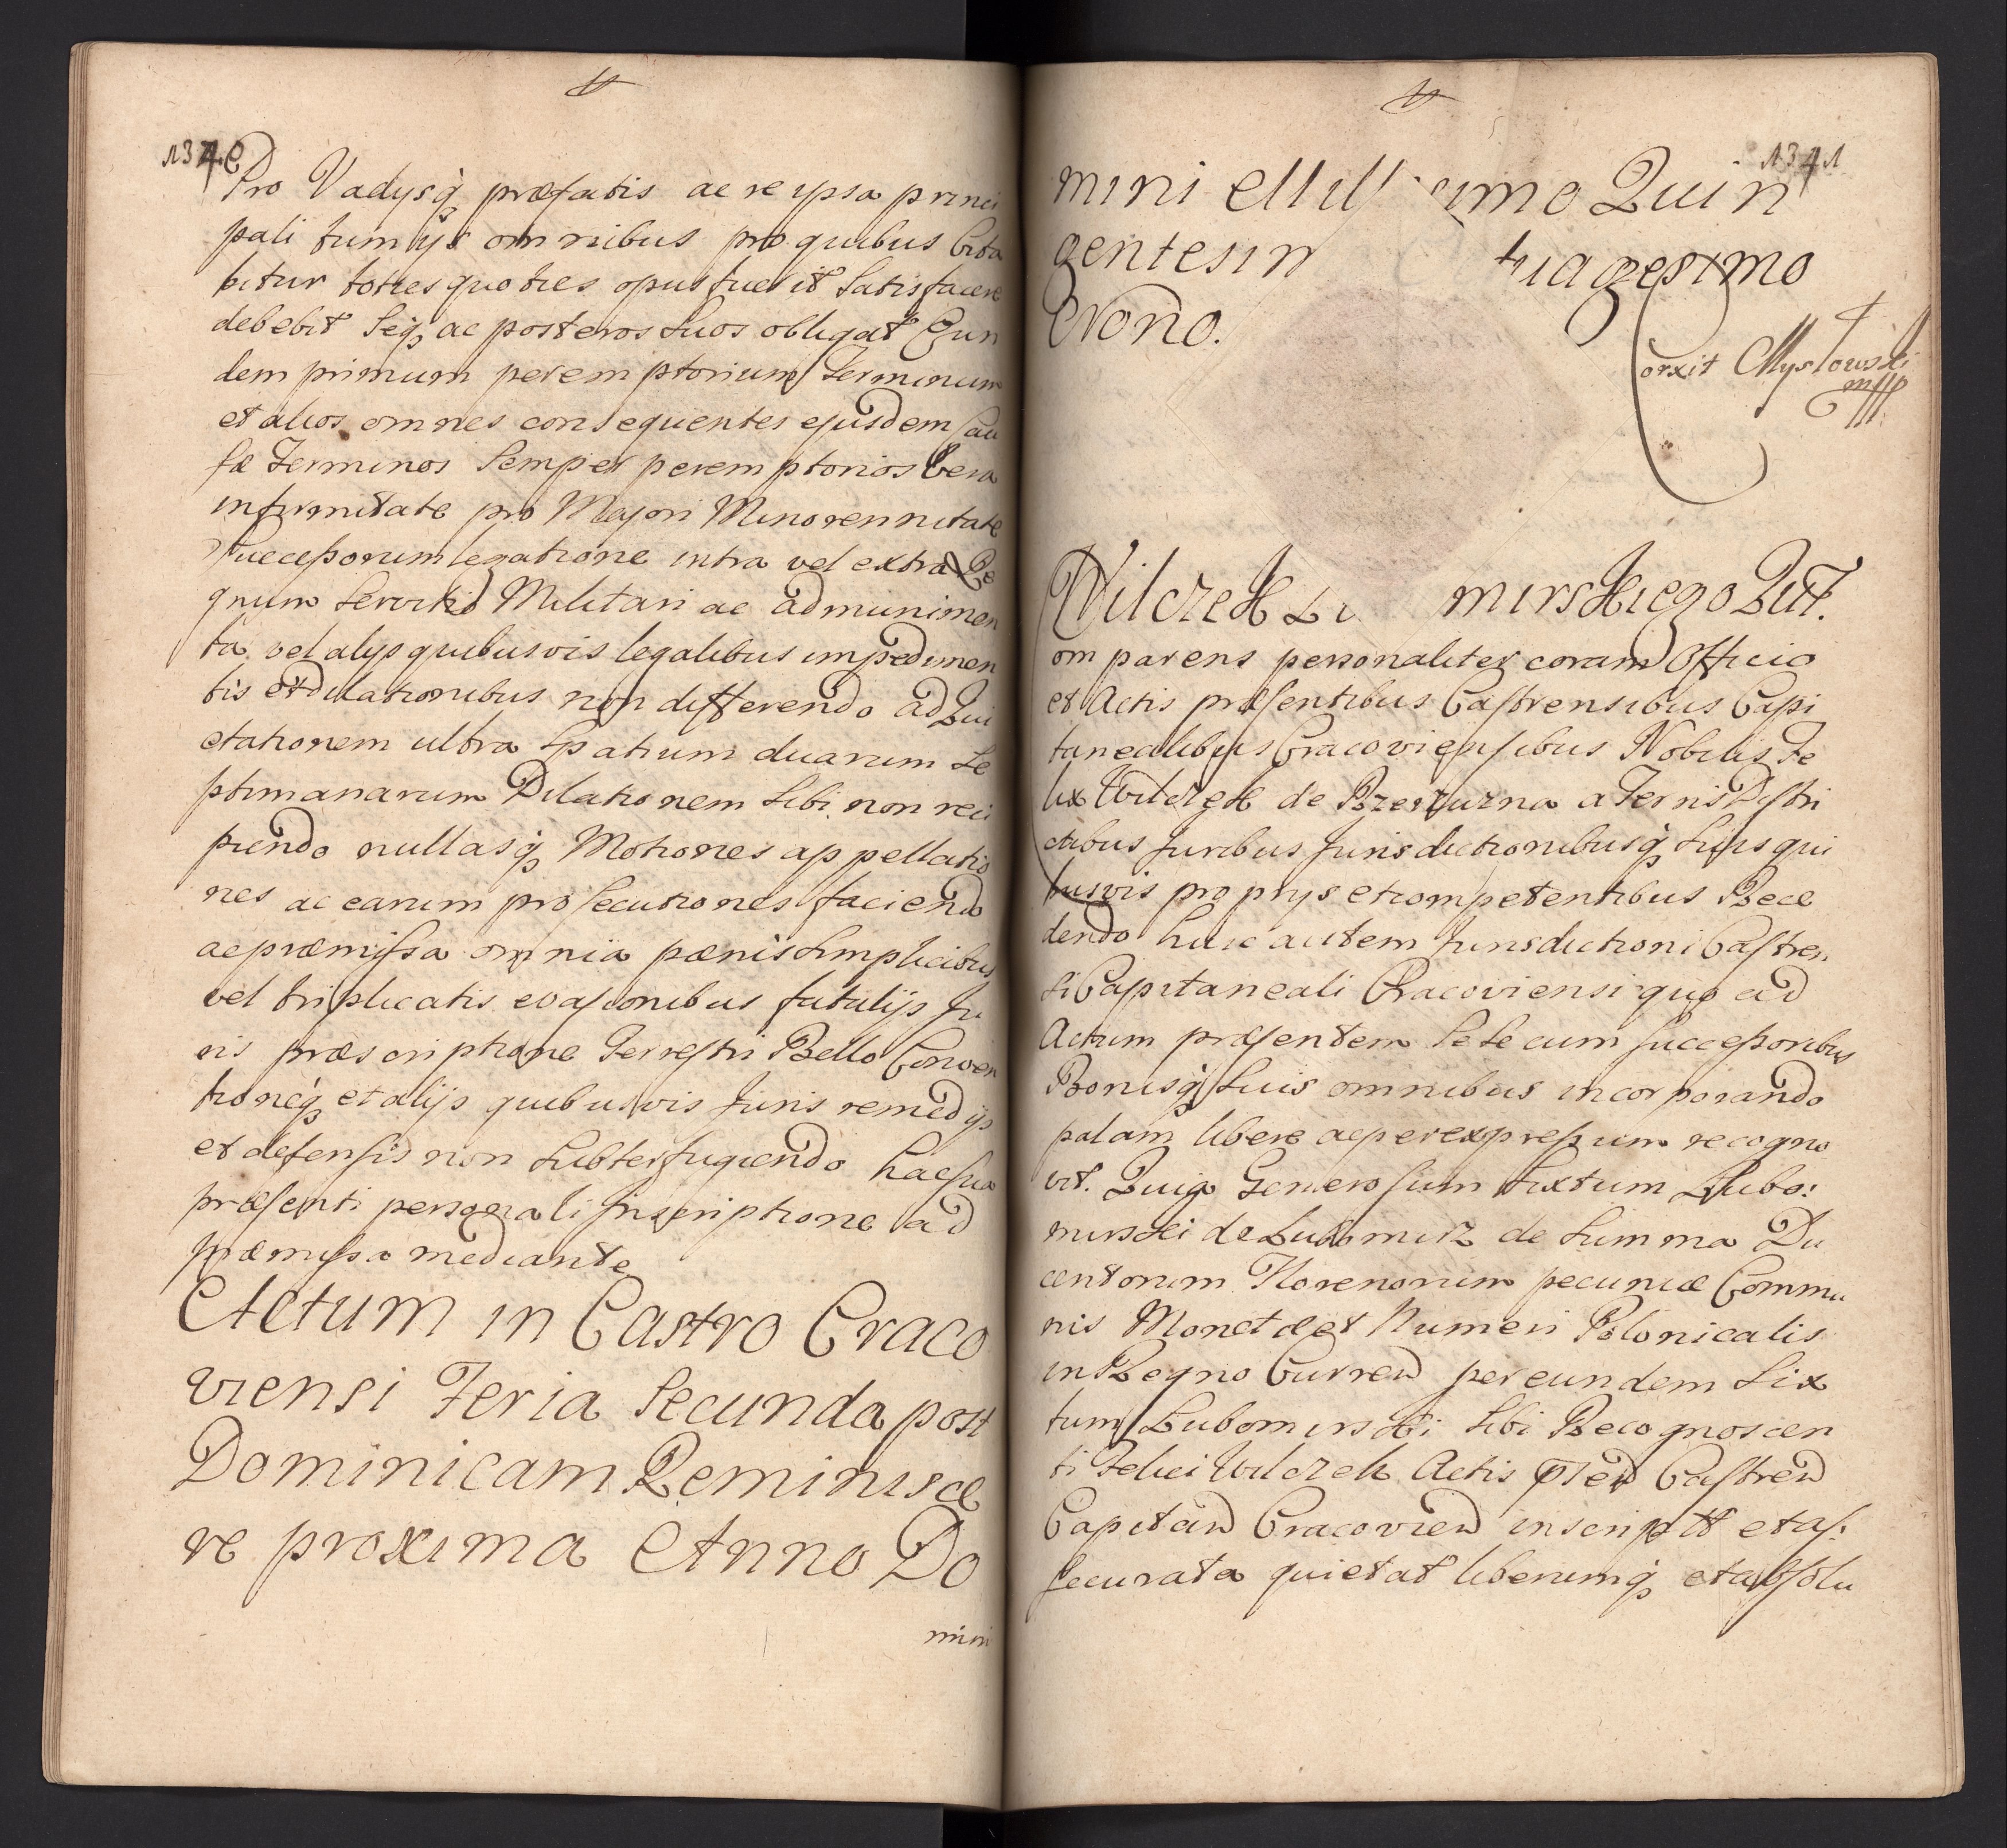 1340
Pro Vadysq, præfatis ac re ipsa princi
pali tum ijs omnibus pro quibus Cita
bitur toties quoties opus fuerit Satisfacere
debebit Seq, ac posteros Suos obligat Eun
dem primum peremptorium Terminum
et alios omnes consequentes ejusdem Cau
sæ Terminos Semper peremptorios Vera
infirmitate pro Majori Minorennitate
Successorum legatione intra vel extra Re
gnum Servitio Militari ac ad munimen
ta vel alijs quibusvis legalibus impedimen
tis et dilationibus non differendo ad Qui
etationem ultra Spatium duarum Se
ptimanarum Dilationem Sibi non reci
piendo nullasq, Motiones appellatio
nes ac earum prosecutiones faciendo
ac præmissa omnia pænis Simplicibus
vel triplicatis evasionibus fatalijs Ju
ris præscriptione Terrestri Bello Conven
tioneq, et alijs quibusvis Juris remedijs
et defensis non Subterfugiendo hac sua
præsenti personali Inscriptione ad
præmissa mediante
Actum in Castro Craco
viensi Feria Secunda post
Dominicam Reminisce
re proxima Anno Do
mini
1341
mini Mill imo Quin
gentesim uagesimo
Nono.
Corxit Mysłowski
mpp
Wilczek Lu mirskiego Quit.
Comparens personaliter coram Officio
et Actis præsentibus Castrensibus Capi
tanealibus Cracoviensibus Nobilis Fe
lix Wilczek de a Terris Distri
ctibus Juribus Jurisdictionibusq, Suis qui
busvis proprijs et competentibus Rece
dendo huic autem Jurisdictioni Castren
si Capitaneali Cracoviensi quo ad
Actum præsentem Se Se cum successoribus
Bonisq, Suis omnibus incorporando
palam libere ac per expressum recogno
vit. Quia Generosum Sixtum Lubo:
mirski de Lubomirz de Summa Du
centorum Florenorum pecuniæ Commu
nis Monetæ et Numeri Polonicalis
in Regno Curren per eundem Six
tum Lubomirski Sibi Recognoscen
ti Felici Wilczek Actis Castren
Capitan Cracovien inscriptt et as:
securata quietat liberumq, et absolu